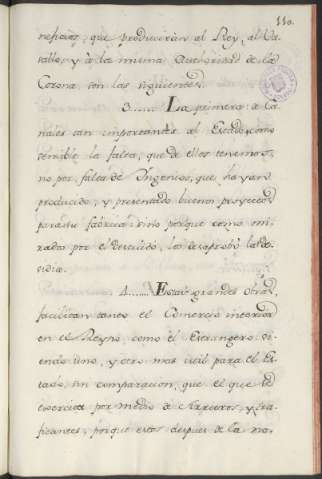 110.
neficios, que producirán al Rey, al Va-
sallo, y à la misma Authoridad de la
Corona son las siguientes.
3...... La primera a Ca-
nales tan importantes al Estado, como
sensible la falta, que de ellos tenemos,
no por falta de Ingenios, que hayan
producido, y presentado buenos proyectos
para su fabrica sino porque como mi-
rados por el descuido, los desaprobó la de-
sidia.
4...... Estas grandes obras,
facilitan tanto el Comercio interior
en el Reyno, como el Estrangero, si-
endo uno, y otro mas util para el Es-
tado, sin comparacion, que el que se
exercita por medio de Arrieros, y tra-
ficantes, porque estos despues de la no-